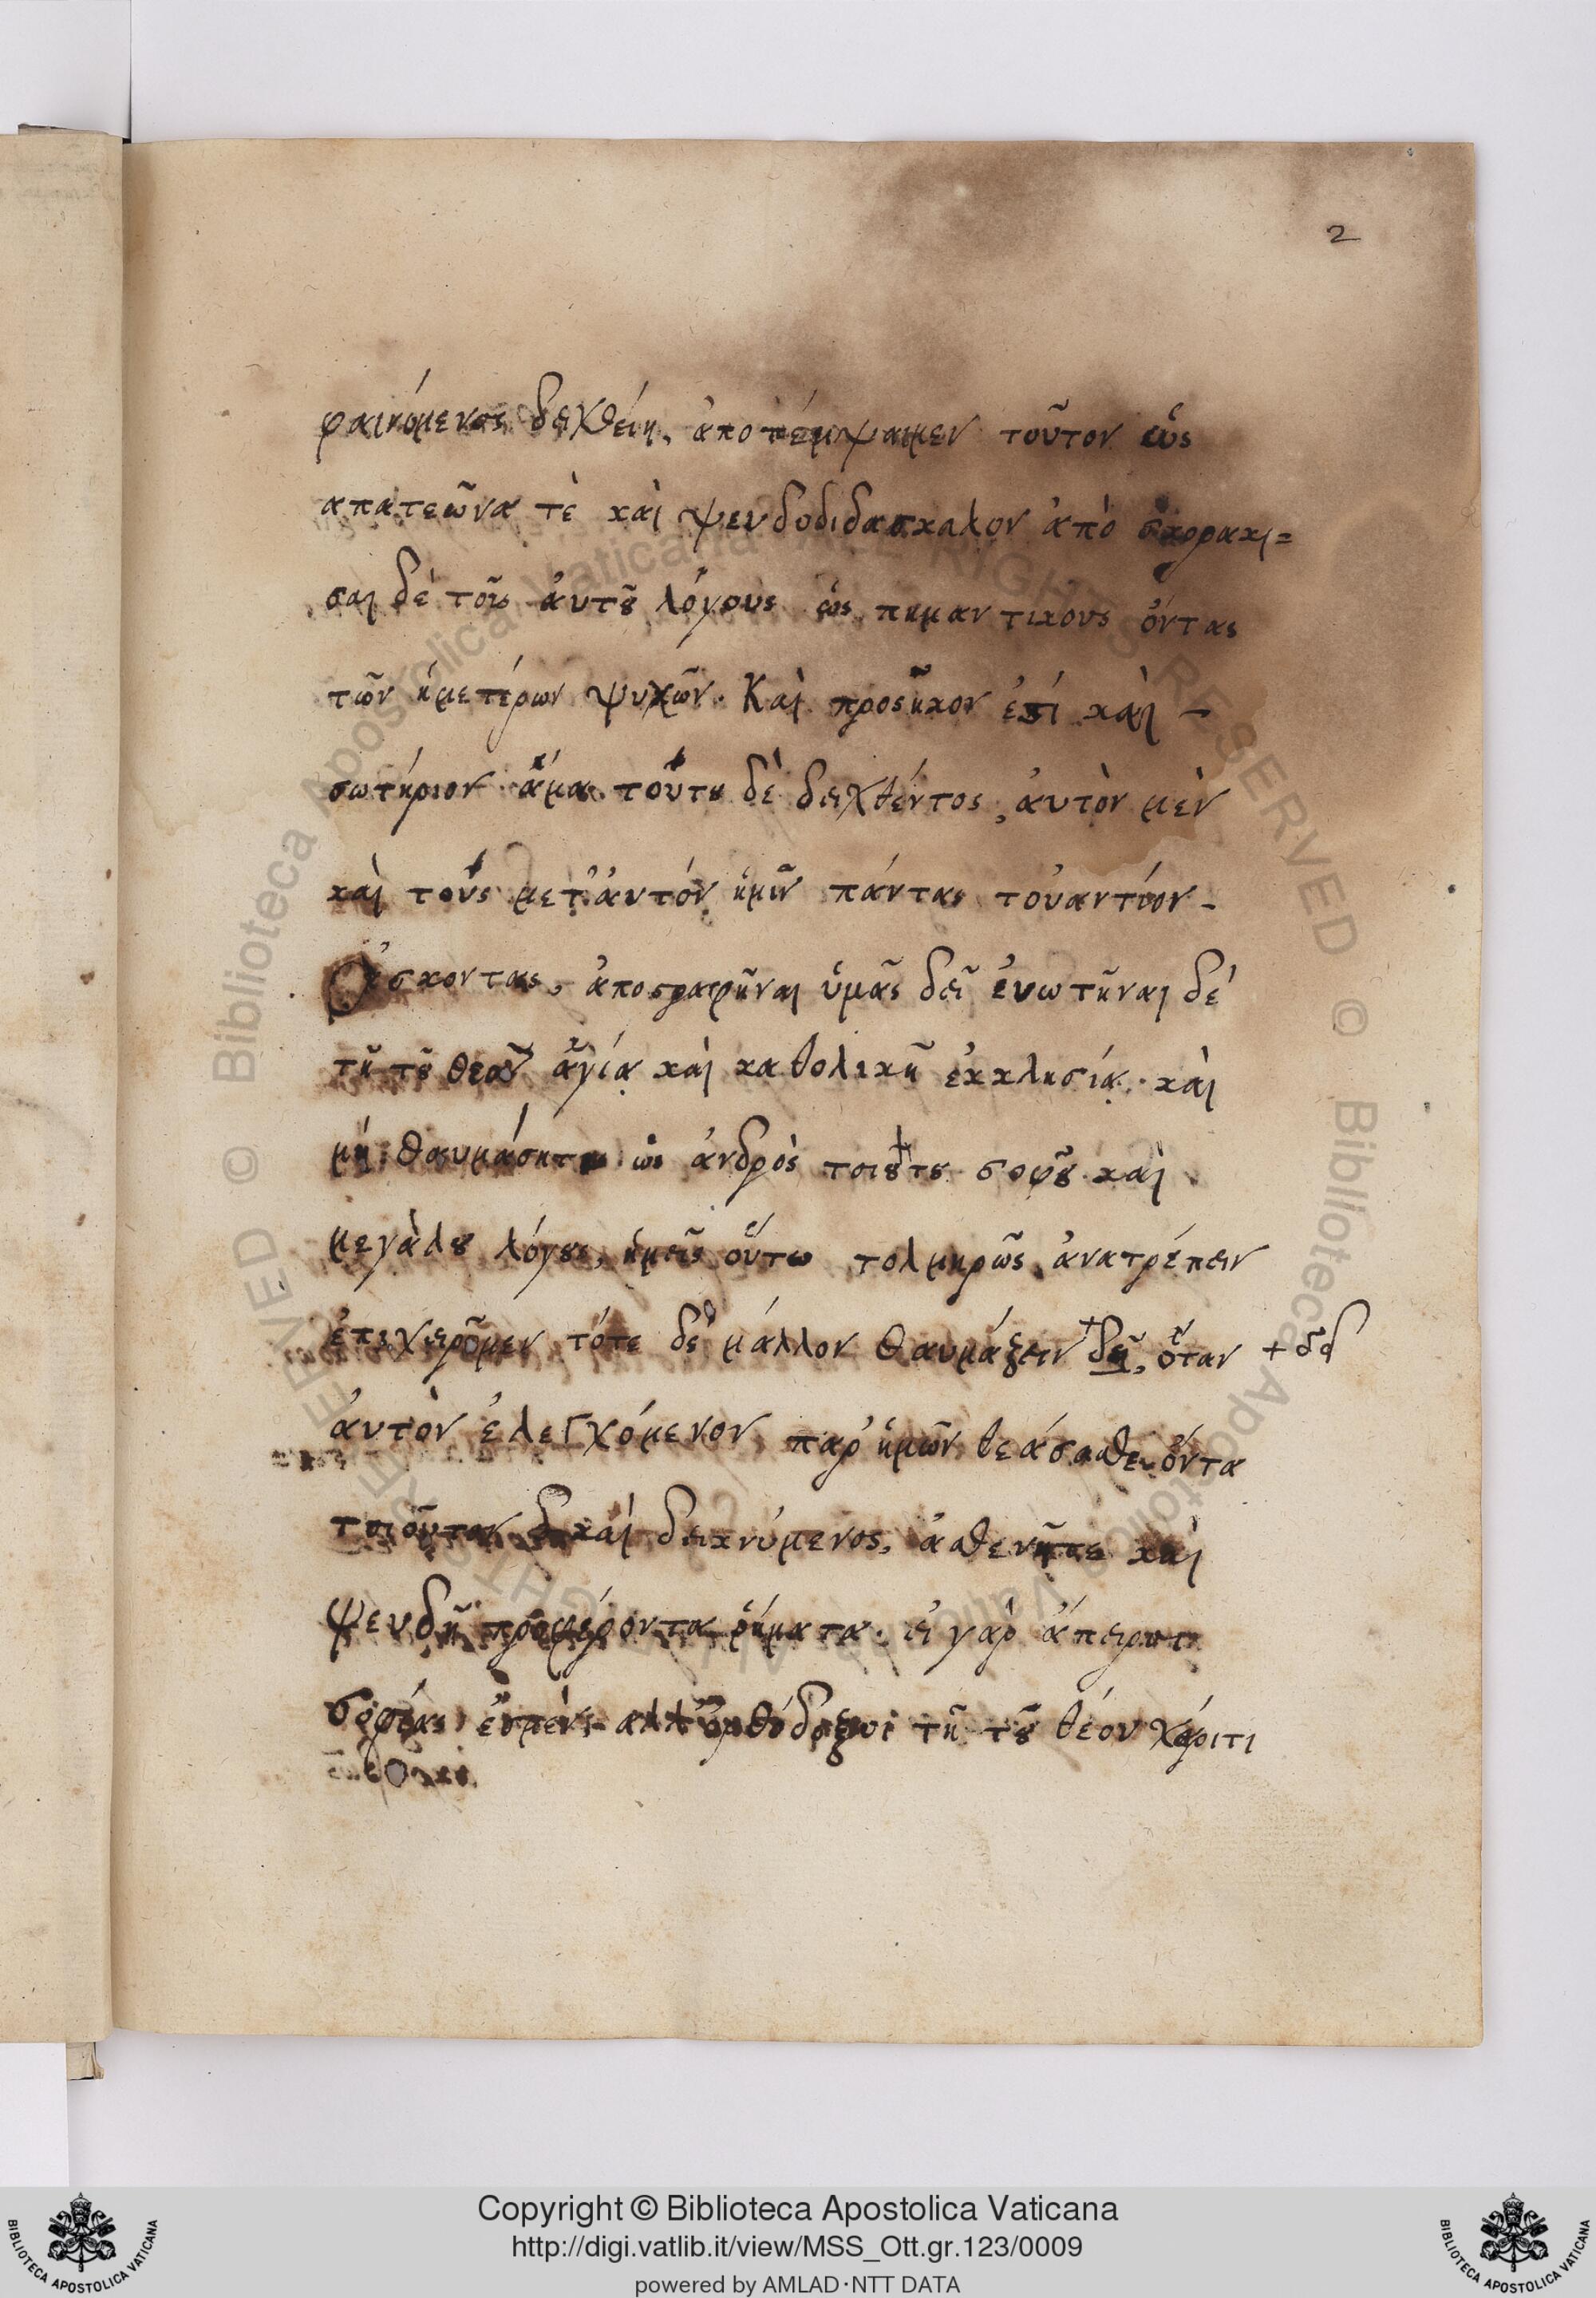 2
φαινόμενος δειχθείη, ἀποπέμψαιμεν τοῦτον ὡς
απατεῶνα τὲ καὶ ψευδοδιδασκαλον ἀπὸ σκορακι=
σαι δὲ τοὺς ἀυτȣ͂ λόγους ὡς πημαντικους ὄντας
τῶν ἡμετέρων ψυχῶν. Καὶ προςῆκον ἐστί καὶ -
σωτήριον ἅμα. τούτȣ δὲ δειχθέντος, ἀυτὸν μὲν
καὶ τοὺς μετ' ἀυτόν ἡμῖν πάντας τοὐαντίον -
φάσκοντας, ἀποστραφῆναι ὑμᾶς δεῖ ἑνωτῆναι δέ
τῆ τȣ͂ θεοῦ ἁγίᾳ καὶ καθολικῆ ἐκκλησίᾳ. καὶ
μή θαυμάσητε ὡς ἀνδρὸς τοιȣ́τȣ σοφȣ͂ καὶ
μεγὰλȣ λόγȣς, ἡμεῖς οὕτω τολμηρῶς ἀνατρέπειν
ἐπιχειροῦμεν τότε δὲ μάλλον θαυμάξειν + δεῖ, ὅταν + δεῖ
ἀυτὸν ἐλεΓχόμενον παρ' ἡμῶν θεάσασθε ὄντα
τοιοῦτον καὶ δεικνύμενος, ἀσθενῆτε καὶ
ψευδῆ προφέροντα ῥήματα. εἰ γὰρ ἄπειροι
σοφίας ἐσμὲν, αλλ' ὀρθόδοξοι τῆ τȣ͂ θέου χάριτι
Copyright © Biblioteca Apostolica Vaticana
http://digi.vatlib.it/view/MSS_Ott.gr.123/0009
powered by AMLAD·NTT DATA
BIBLIOTECA APOSTOLICA VATICANA
BIBLIOTECA APOSTOLICA VATICANA